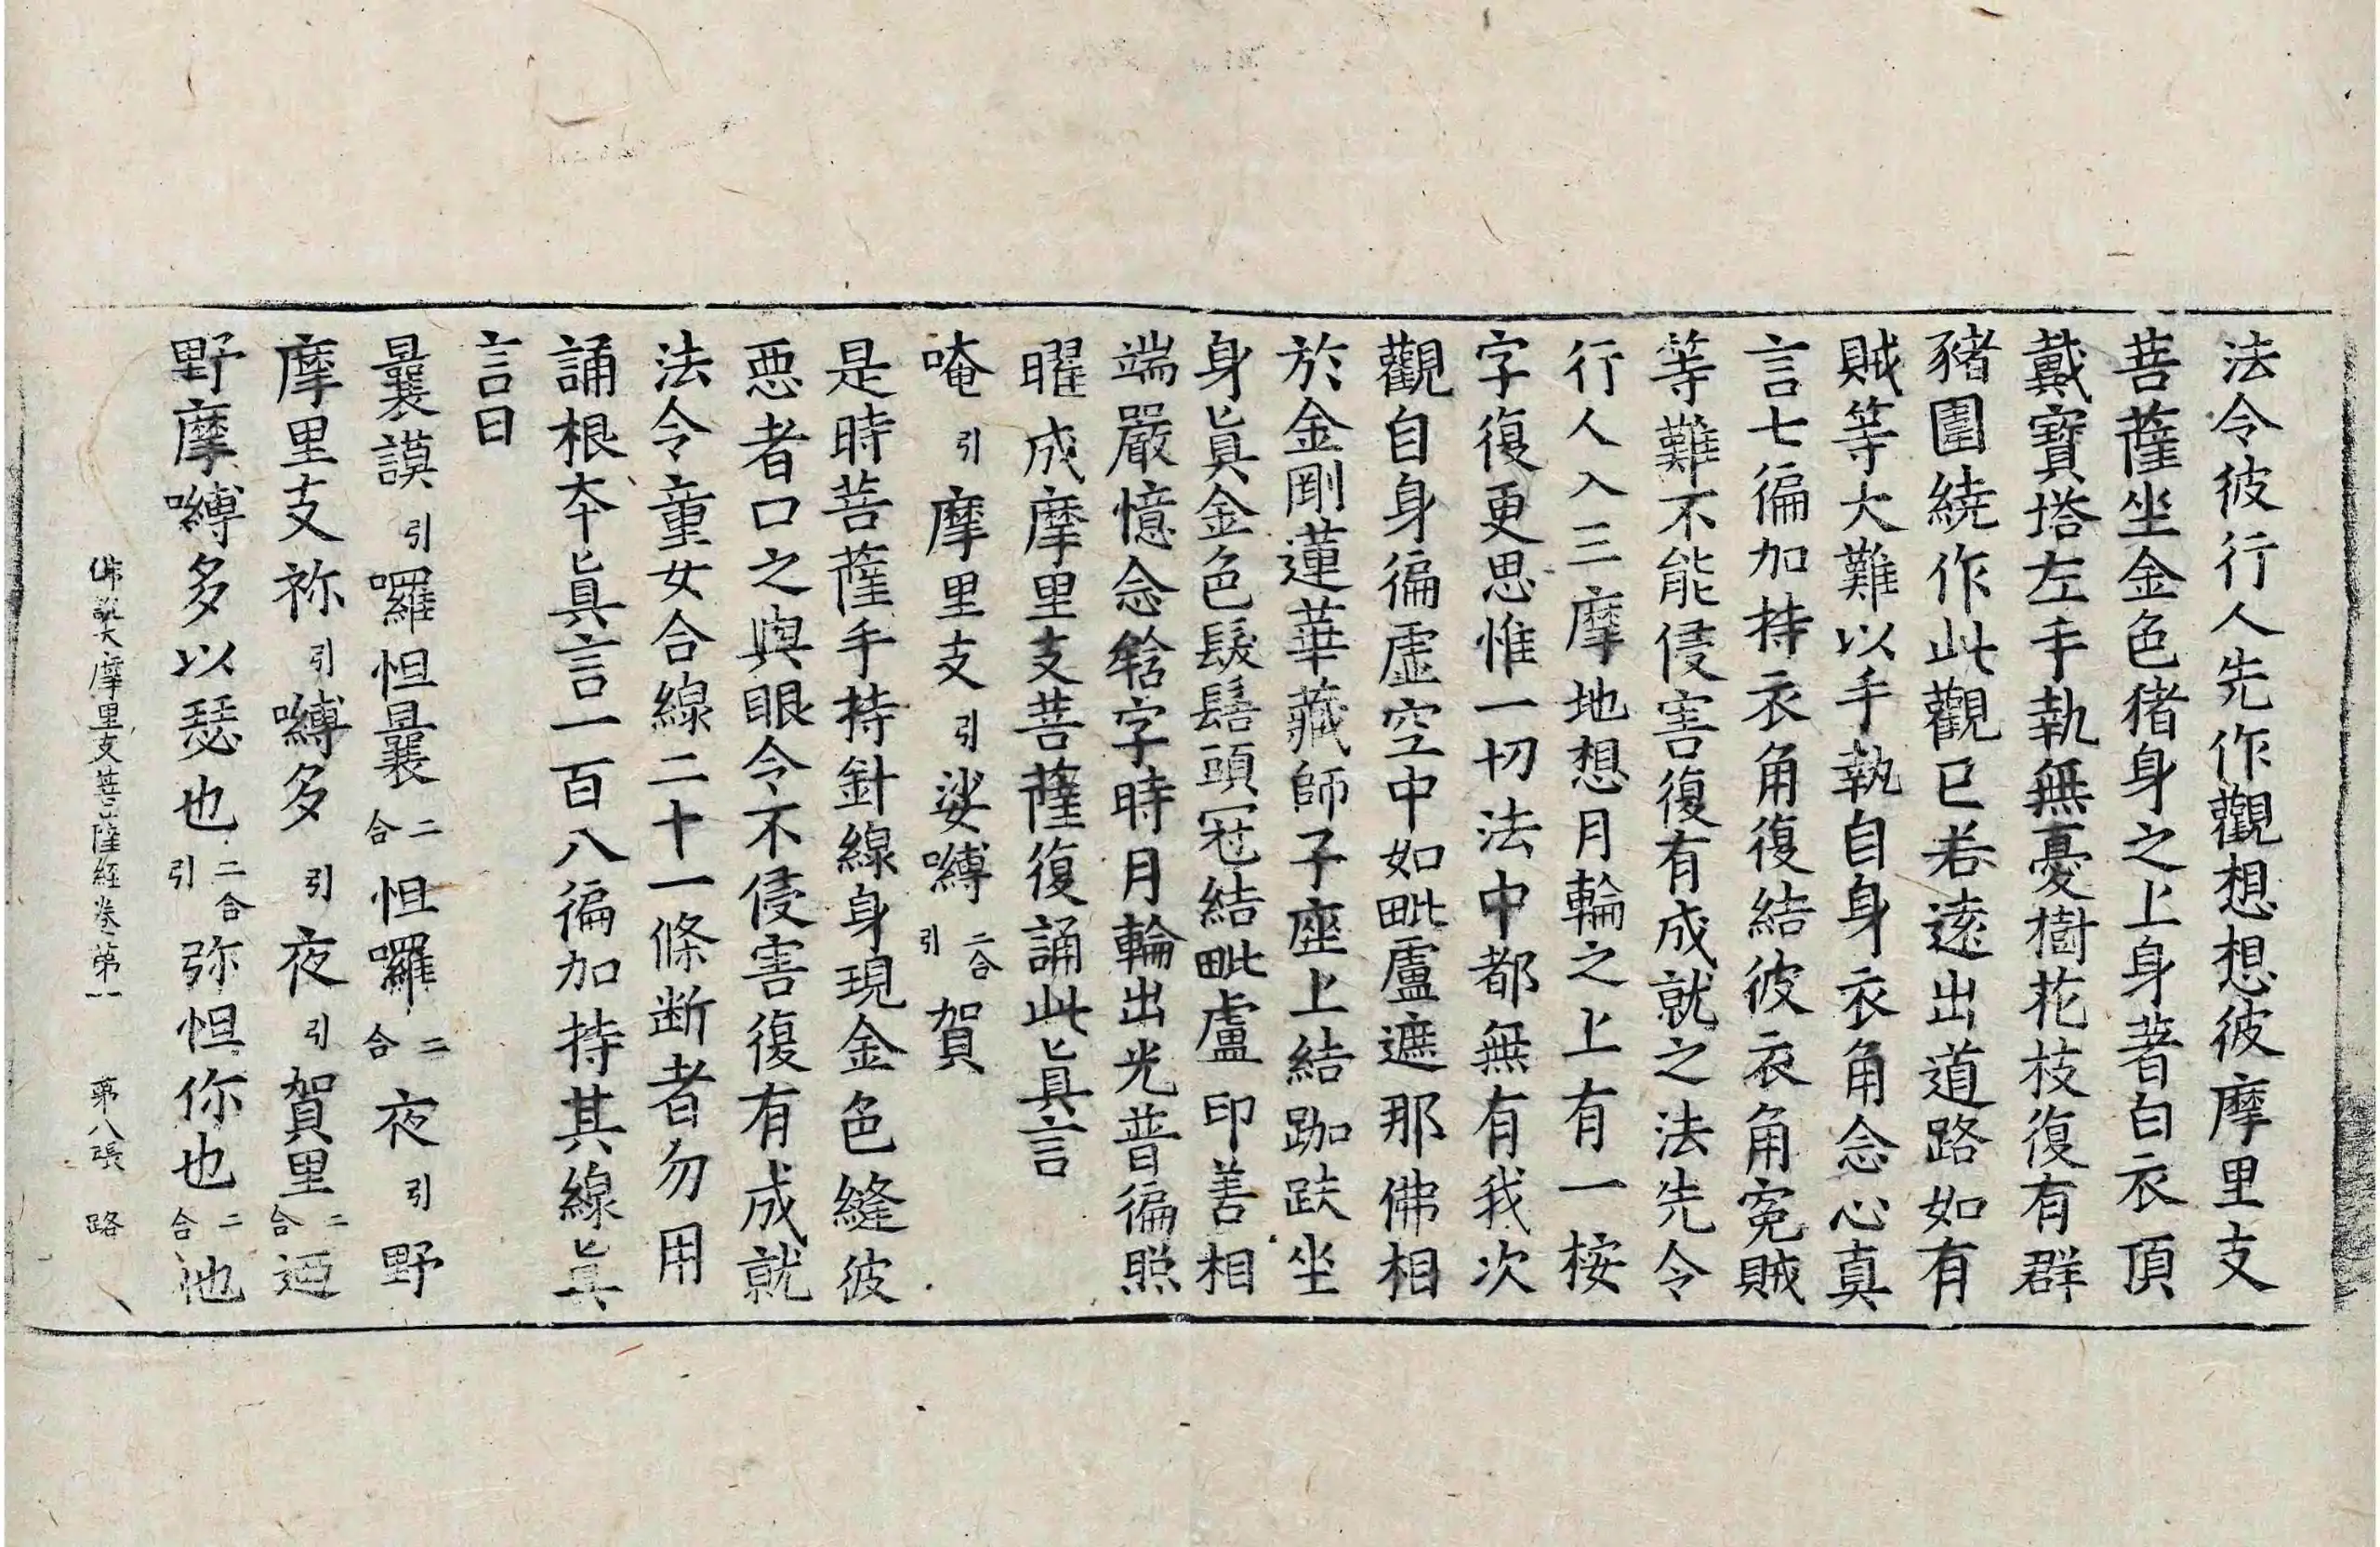 法令彼行人先作觀想想彼摩里支
菩薩坐金色猪身之上身著白衣頂
戴寶塔左手執無憂樹花枝復有群
豬圍繞作此觀已若遠出道路如有
賊等大難以手執自身衣角念心真
言七徧加持衣角復結彼衣角寃賊
等難不能侵害復有成就之法先令
行人入三摩地想月輪之上有一桉
字復更思惟一切法中都無有我次
觀自身徧虛空中如毗盧遮那佛相
於金剛蓮華藏師子座上結跏趺坐
身眞金色髮髻頭冠結毗盧印善相
端嚴憶念唅字時月輪出光普徧照
曜成摩里支菩薩復誦此眞言
唵引摩里支引娑嚩二合引賀
是時菩薩手持針線身現金色縫彼
惡者口之與眼令不侵害復有成就
法令童女合線二十一條断者勿用
誦根本眞言一百八徧加持其線眞
言曰
曩謨引囉怛曩二合怛囉二合夜引野
摩里支祢引嚩多引夜引賀里二合迺
野摩嚩多以瑟也二合引弥怛你也二合他
佛說大摩里支菩薩經卷第一 第八張 路